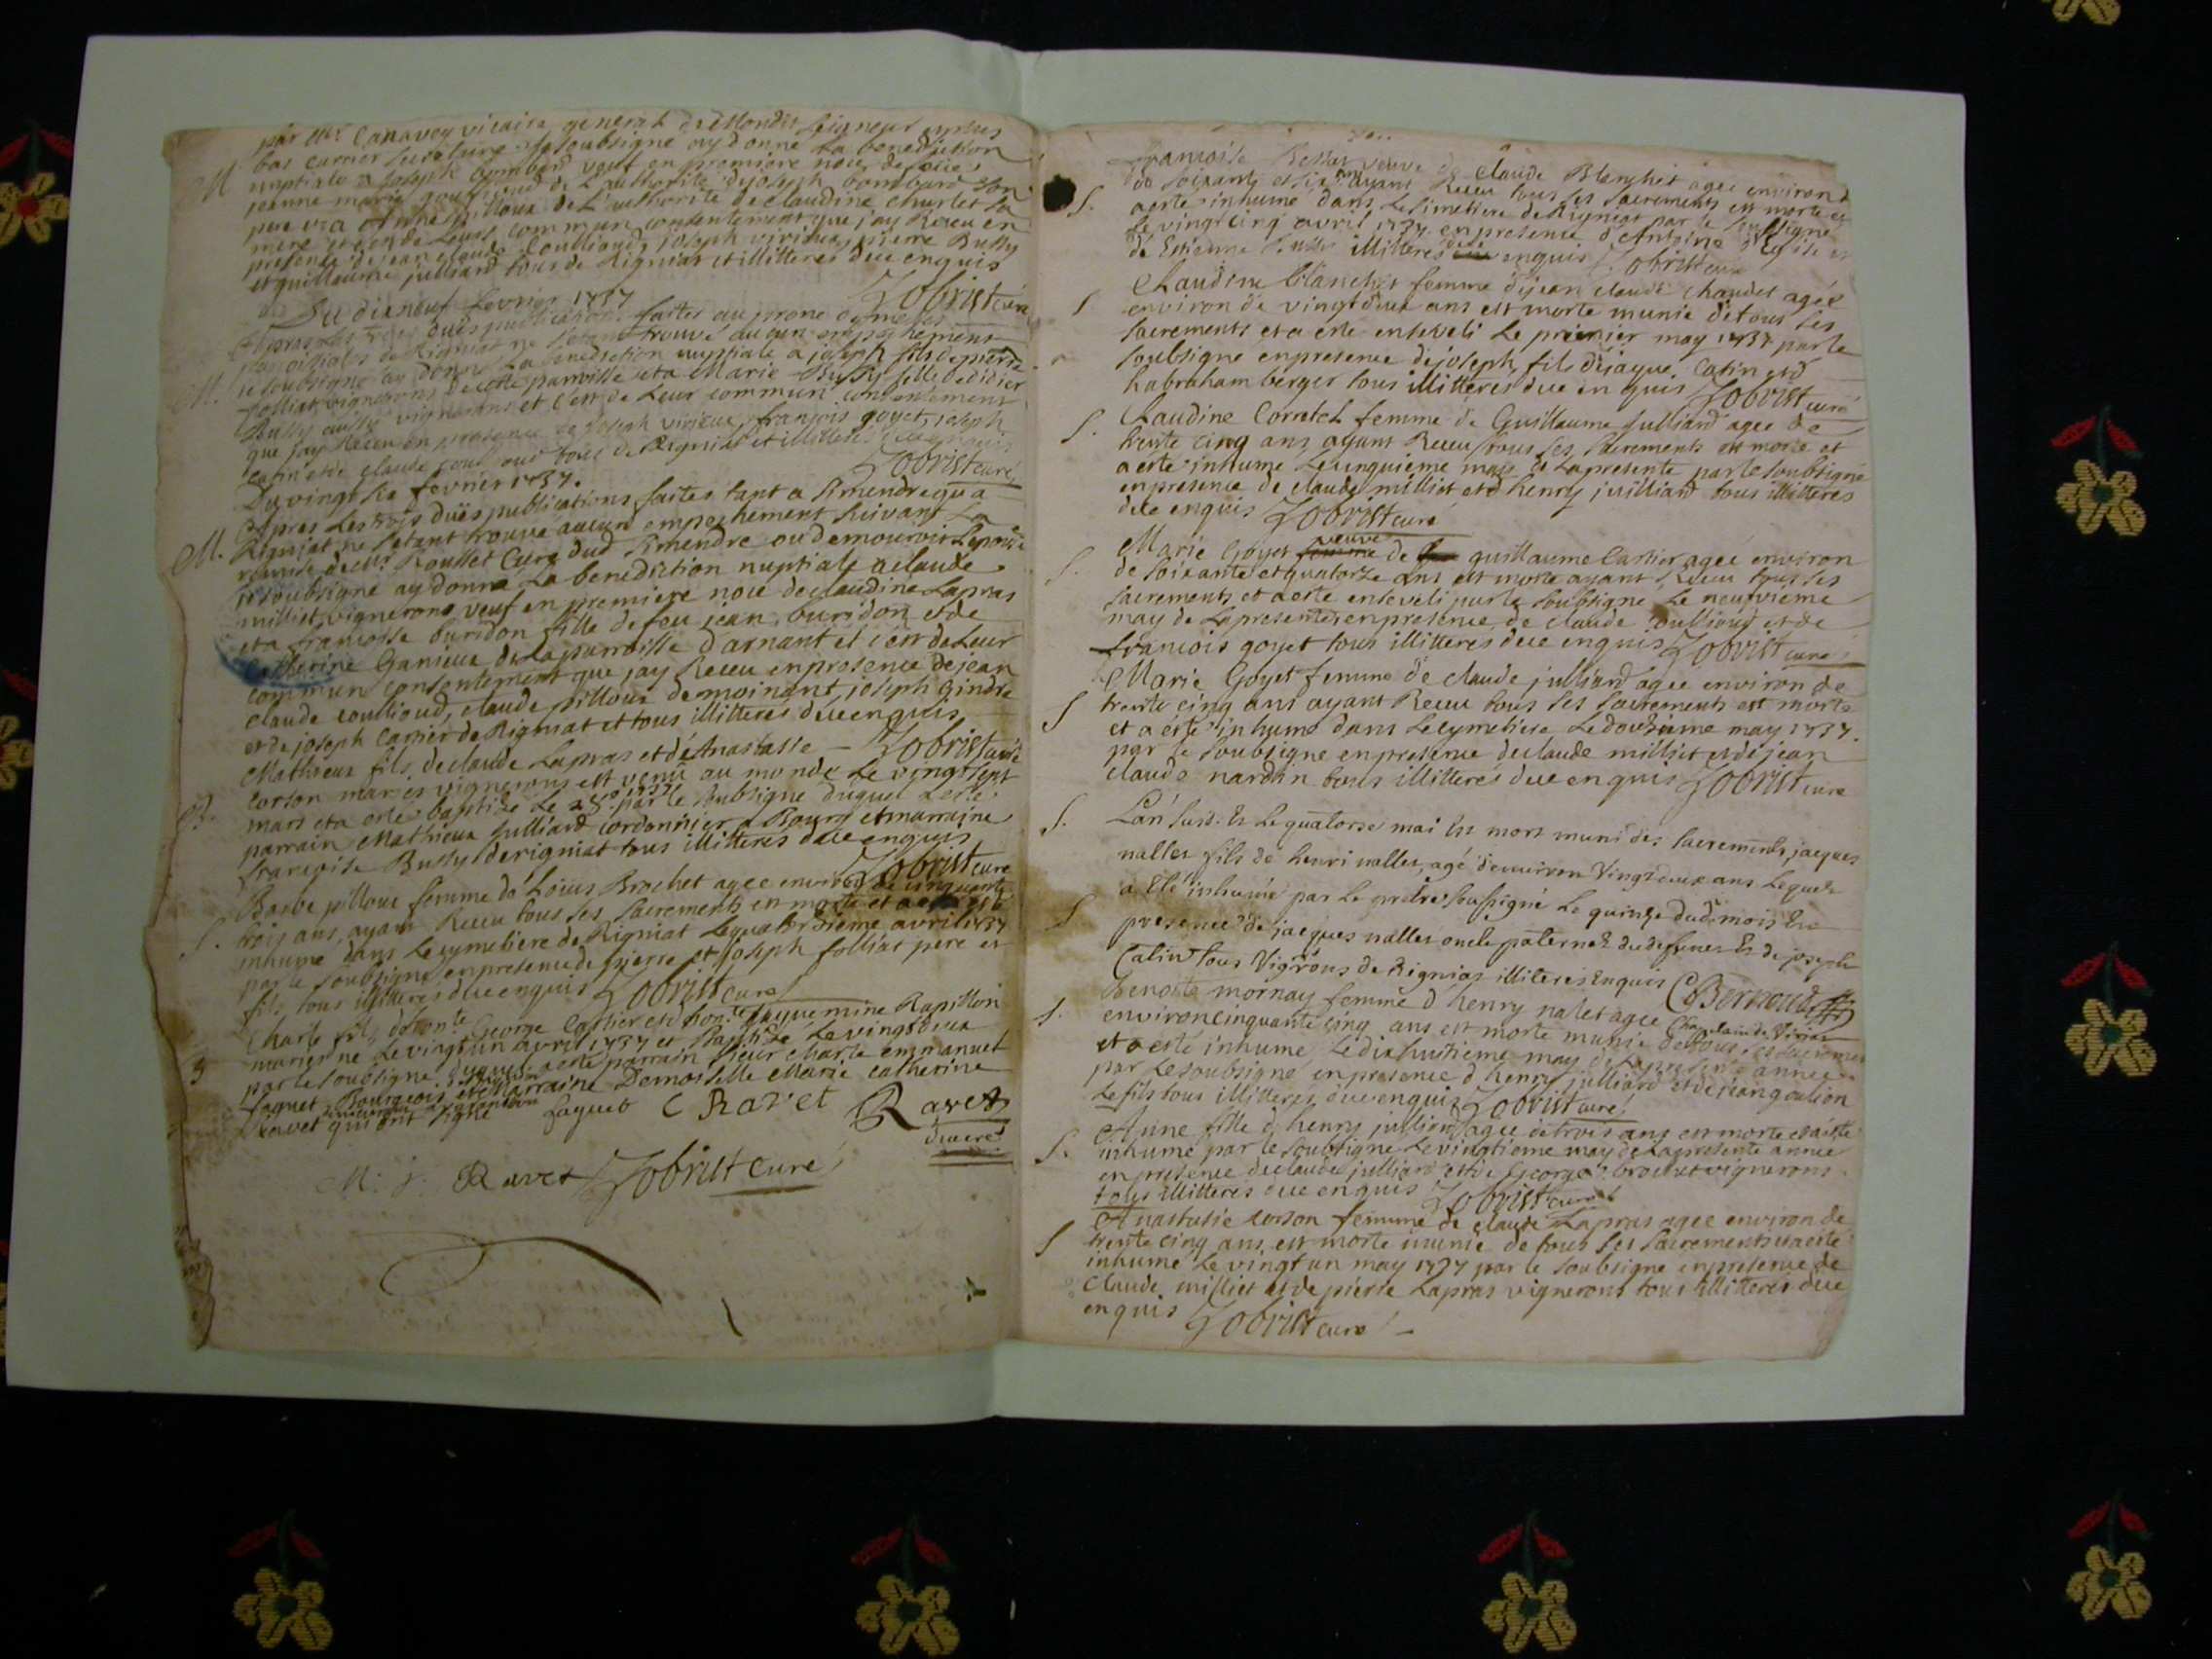 par Mr Canavoy vicaire general de Mondit seigneur
bas le soubsigne ay donne la benediction
M nuptiale a joseph bombard veuf en premiere noce de
jeanne marie de l'authorite de joseph bombard son
pere et a Anne pilloux de l'authorite de claudine churlet sa
mere et c'est de leurs commun consentement que jay Receu en
presence de jean claude coullioud, joseph virieux, pierre Bussy
et guillaume julliard tous de Rigniat et illitteres due enquis
Zobrist curé
Du dixneuf fevrier 1737
Apres les trois dues publications faites au prone de
paroissiales de Rigniat ne s'etant trouvé aucun empeschement
M. le soubsigne ay donné la benediction nuptiale a joseph fils de pierre
folliat vignerons de cette parroisse et a Marie Bussy fille de didier
Bussy aussy vignerons et c'est de leur commun consentement
que jay Receu en presence de joseph virieux, françois goyet, joseph
catin et de claude tous de Rigniat et illitteres due enquis
Zobrist curé
Du vingt six fevrier 1737.
Apres les trois dues publications faites tant a Simendre qu'a
M. Rigniat ne s'etant trouvé aucun empeschement suivant la
remise de Mr Roullet Curé dud Simendre
je soubsigne ay donné la benediction nuptiale a claude
milliet, vignerons veuf en premiere noce de claudine Lapras
et a francoise buridon fille de feu jean buridon et de
Catherine Ganieux de la parroisse d'arnant et c'est de leur
commun consentement que jay Receu en presence de jean
claude coullioud, claude pilloux de moinant, joseph gindre
et de joseph Cartier de Rigniat et tous illitteres due enquis
Zobrist curé
Mathieux fils de claude Lapras et de Anastasie
corson mariés vignerons est venu au monde le vingt sept
B. mars et a esté baptizé le 28e 1737 par le soubsigne duquel a esté
parrain Mathieux Julliard cordonnier a Bourg et marraine
françoise Bussy de rigniat tous illitteres due enquis
Zobrist curé
Barbe pilloux femme de Louis Brochet agee environ de cinquante
S. trois ans, ayant Receu tous ses sacrements est morte et a esté
inhumé dans le cymetiere de Rigniat le quatorzieme avril 1737
par le soubsigne en presence de pierre et joseph folliat pere et
fils tous illitteres due enquis Zobrist curé
Charle fils de George Cartier et d'hon.te jayquemine Rapillion
mariés né le vingt un avril 1737 et Baptizé le vingt deux
B par le soubsigne duquel a esté parrain sieur Charle emmanuel
faguet Bourgeois et Marraine Demoiselle Marie catherine
Ravet qui ont signé faguet C Ravet Ravet
diacre
M: j: Ravet Zobrist curé
francoise veuve de claude Blanchet agee environ
de soixante et six ans ayant Receu tous ses sacrements est morte et
S. a esté inhumé dans le simetiere de Rigniat par le soubsigne
le vingt cinq avril 1737 en presence d'Antoine et
de Estienne illitteres due enquis Zobrist curé
Claudine blanchet femme de jean claude chaudet agée
S environ de vingt deux ans est morte munie de tous ses
sacrements et a esté enseveli le premier may 1737 par le
soubsigne en presence de joseph fils de jaque Catin et d
habraham berger tous illitteres due enquis Zobrist curé
S. Claudine Corretel femme de Guillaume Julliard agee de
trente cinq ans ayant Receu tous ses sacrements est morte et
a esté inhumé le cinquieme may de la presente par le soubsigné
en presence de claude milliet et d henry julliard tous illitteres
due enquis Zobrist curé
Marie Goyet veuve de guillaume Cartier agee environ
S. de soixante et quatorze ans est morte ayant Receu tous ses
sacrements et a esté enseveli par le soubsigné le neufvieme
may de la presente en presence de claude coullioud et de
francois goyet tous illitteres due enquis Zobrist curé
Marie Goyet femme de claude julliard agee environ de
S trente cinq ans ayant Receu tous ses sacrements est morte
et a esté inhumé dans le cymetiere le douzieme may 1737.
par le soubsigne en presence de claude milliet et de jean
claude nardin tous illitteres due enquis Zobrist curé
S. L'an susd. & le quatorse mai est mort muni des sacrements jacques
nallet fils de henri nallet, agé d'environ vingt deux ans lequel
a été inhumé par le pretre soussigné le quinze dud mois en
S presence de jacques nallet oncle paternel du deffunct & de joseph
Catin tous vignrons de Rignias illiteres enquis CBernoud
Chapelain de
Benoite moinay femme d henry nalet agee
S. environ cinquante cinq ans est morte munie de tous
et a esté inhumé le dixhuitieme may de la presente année
par le soubsigne en presence d henry julliard et de jean goulion
le fils tous illitteres due enquis Zobrist curé
Anne fille d henry julliard agee de trois ans est morte et a esté
S. inhumé par le soubsigne le vingtieme may de la presente année
en presence de claude julliard et de George brochet vignerons
tous illitteres due enquis Zobrist curé
Anastasie corson femme de claude Lapras agee environ de
S trente cinq ans est morte munie de tous ses sacrements et a esté
inhumé le vingt un may 1737 par le soubsigne en presence de
Claude milliet et de pierre Lapras vignerons tous illitteres due
enquis Zobrist curé